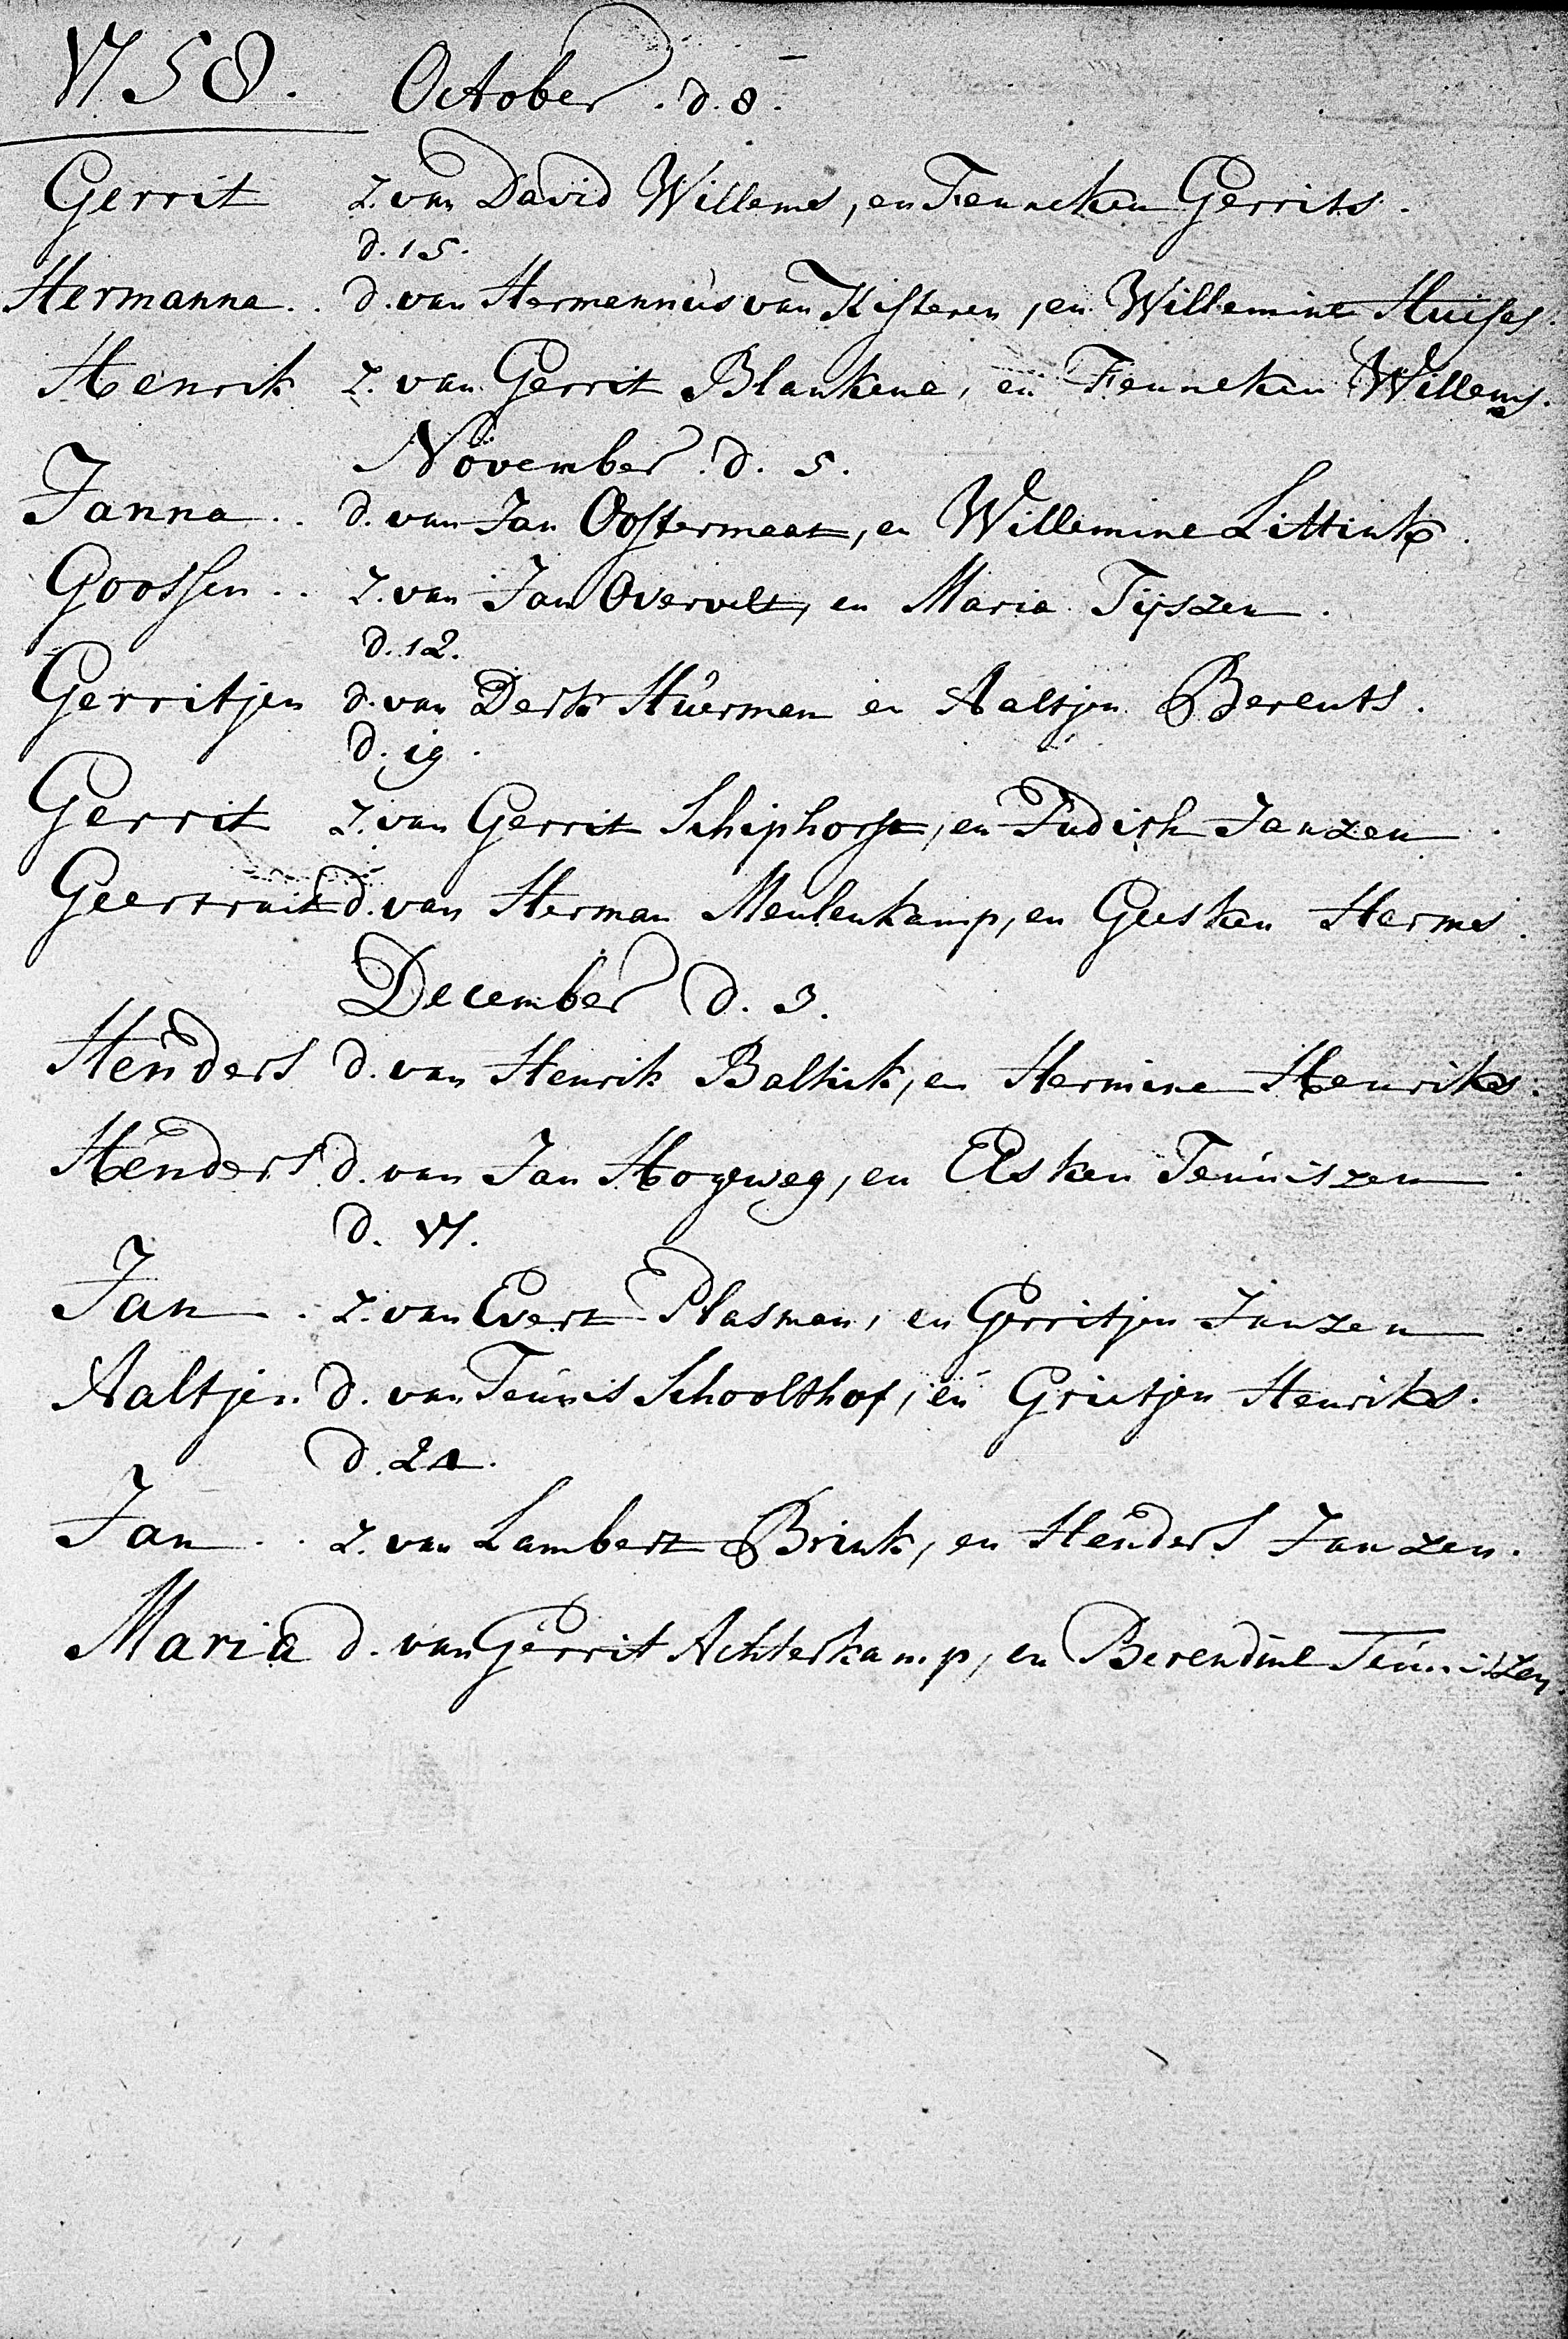 1758. October. d. 8.
Gerrit z. van David Willems, en Fenneken Gerrits.
d. 15.
Hermanna.. d. van Hermannus van Kisteren, en Willemine Huises.
Henrik z. van Gerrit Blankene, en Fenneken Willems.
November. d. 5.
Janna.. d. van Jan Oostermaat, en Willemine Littink.
Goossen.. z. van Jan Overvelt, en Maria Tijszen.
d. 12.
Gerritjen d. van Derk Huerman en Aaltjen Berents.
d. 19.
Gerrit z. van Gerrit Schiphorst, en Judith Janzen.
Geertruit d. van Herman Meulenkamp, en Geesken Herms.
December d. 3.
Henders d. van Henrik Baltink, en Hermine Henriks.
Henders d. van Jan Hogeweg, en Elsken Teuniszen.
d. 17.
Jan. z. van Evert Plasman, en Gerritjen Janzen.
Aaltjen d. van Teunis Schoolthof, en Grietjen Henriks.
d. 24.
Jan.. z. van Lambert Brink, en Henders Janzen.
Maria d. van Gerrit Achterkamp, en Berendine Teuniszen.